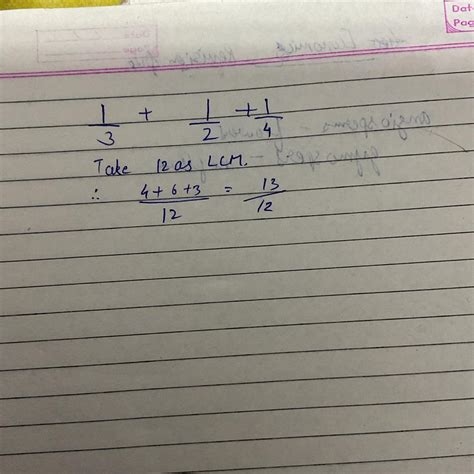 Date
Pag
1/3 + 1/2 + 1/4
Take 12 as LCM.
∴ 4+6+3/12 = 13/12